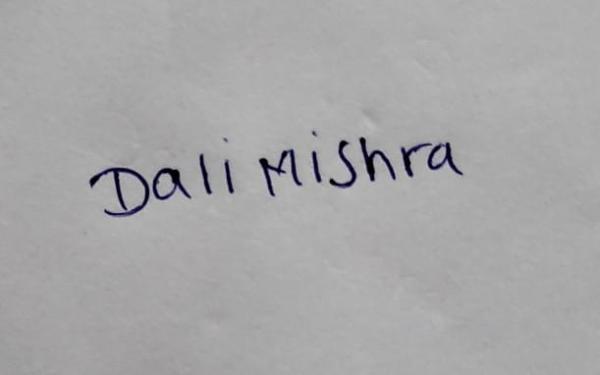 Dali Mishra